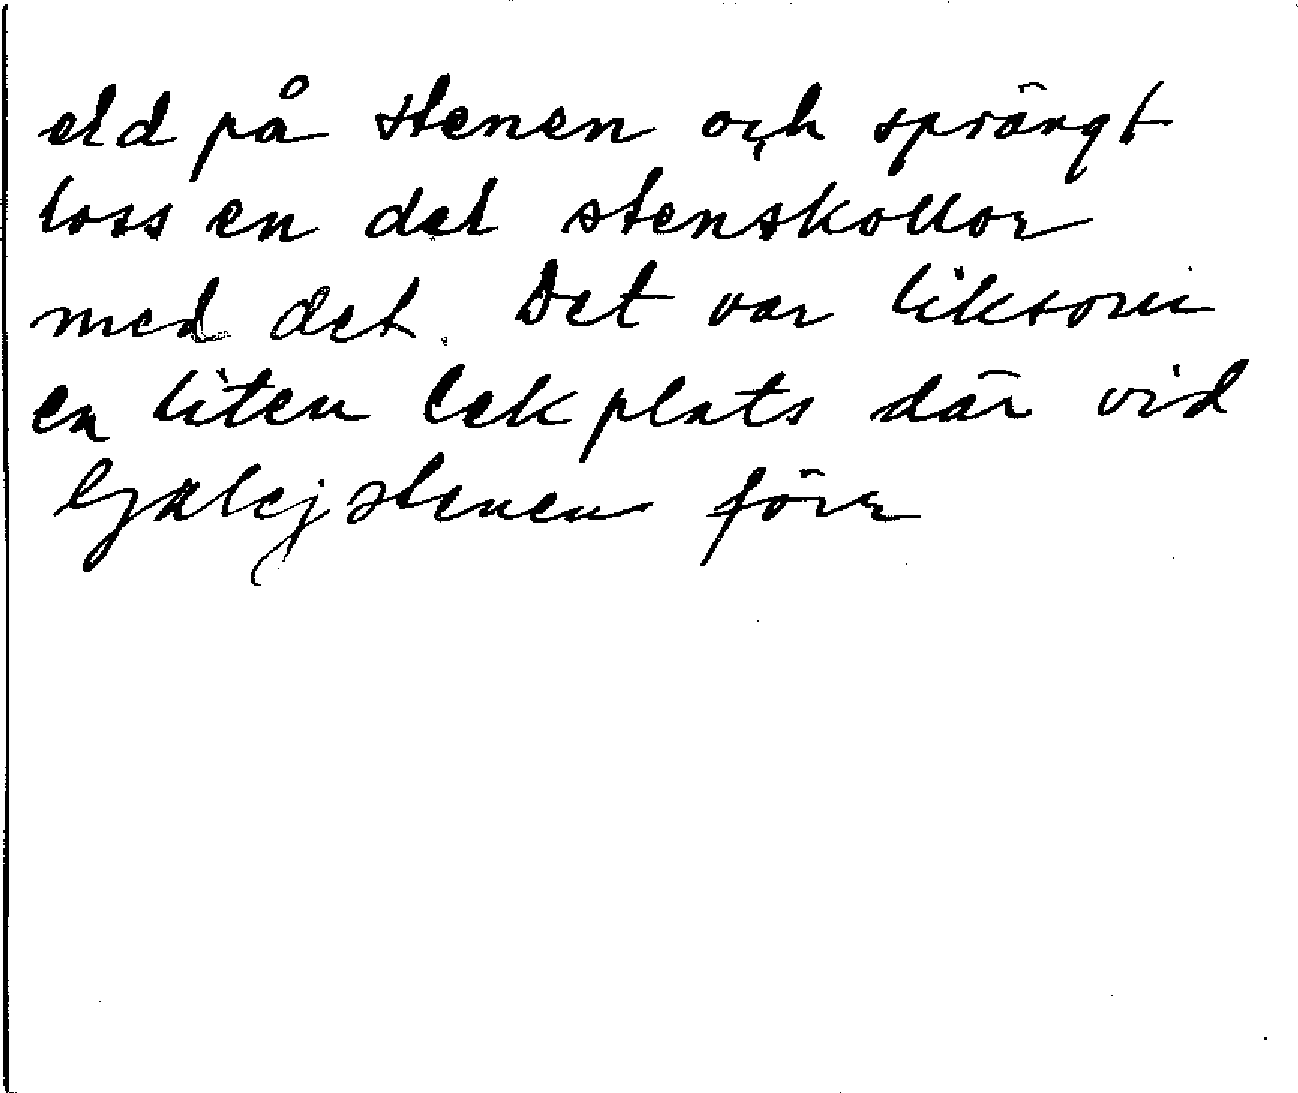 eld på stenen och sprängt
loss en del stenskollor
med det. Det var liksom
en liten lekplats där vid
stenen förr